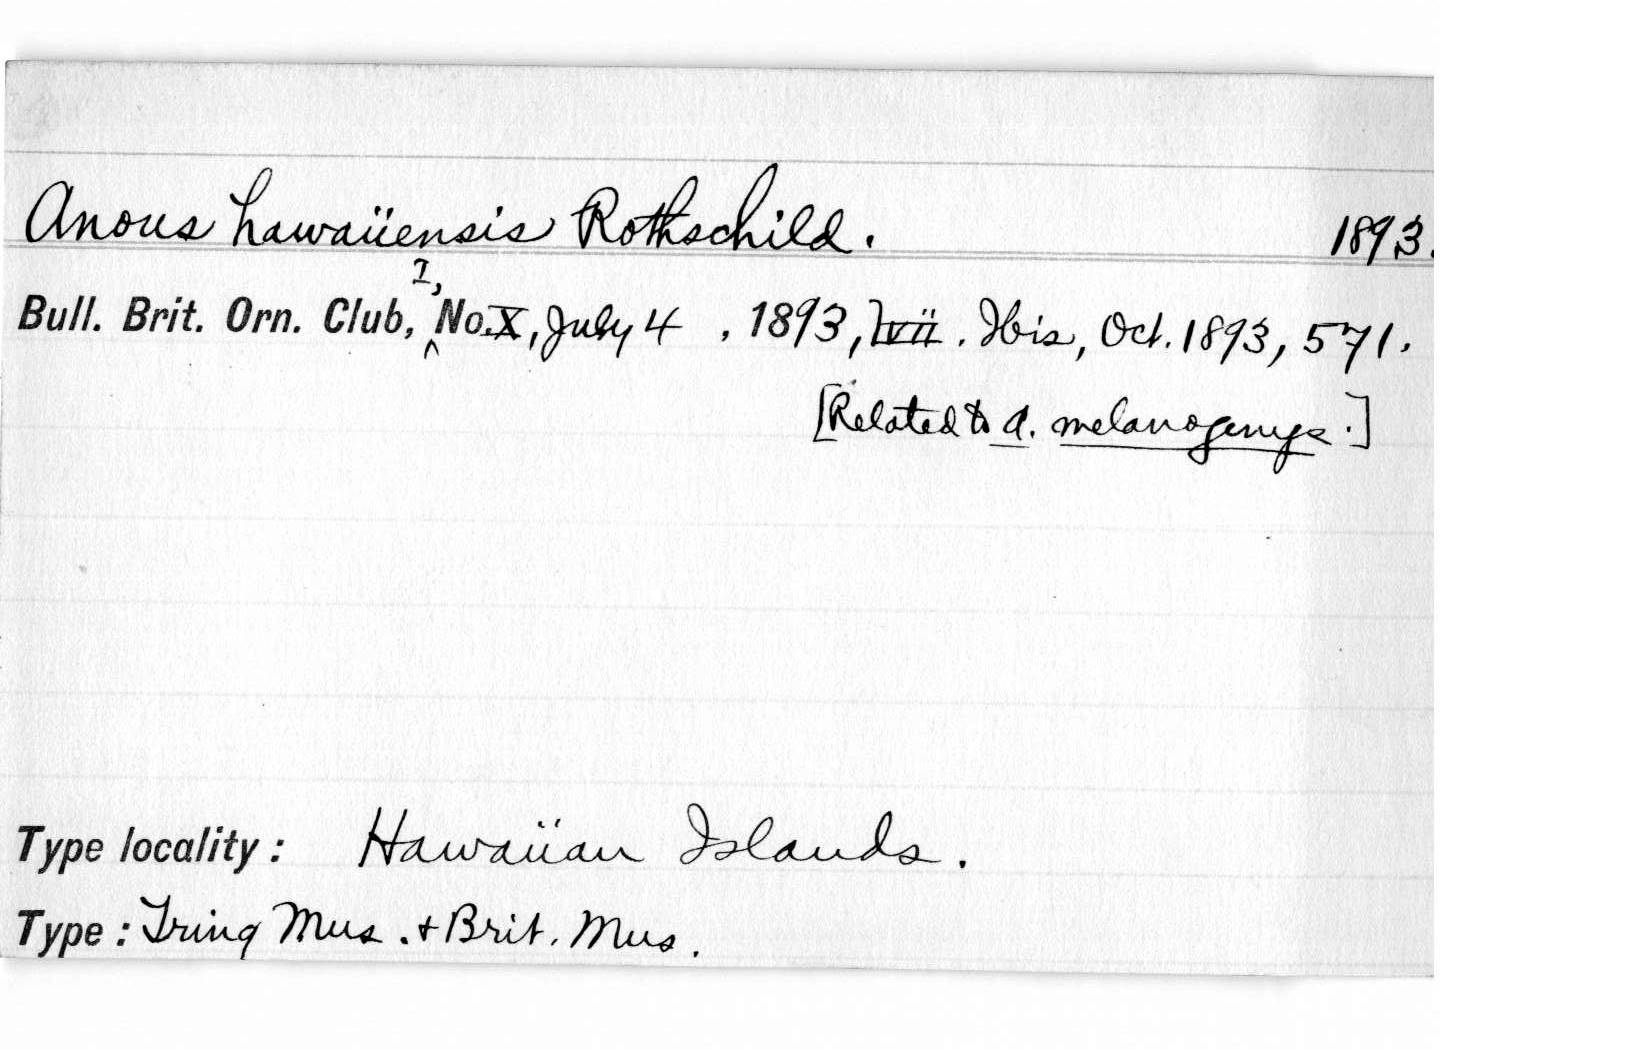 Anous hawaiiensis Rothschild. 1893.
Bull. Brit. Orn. Club, I, No. X, July 4, 1893, lvii. Ibis, Oct. 1893, 571.
[Related to A. melanogenys.]
Type locality: Hawaiian Islands.
Type: Tring Mus. + Brit. Mus.